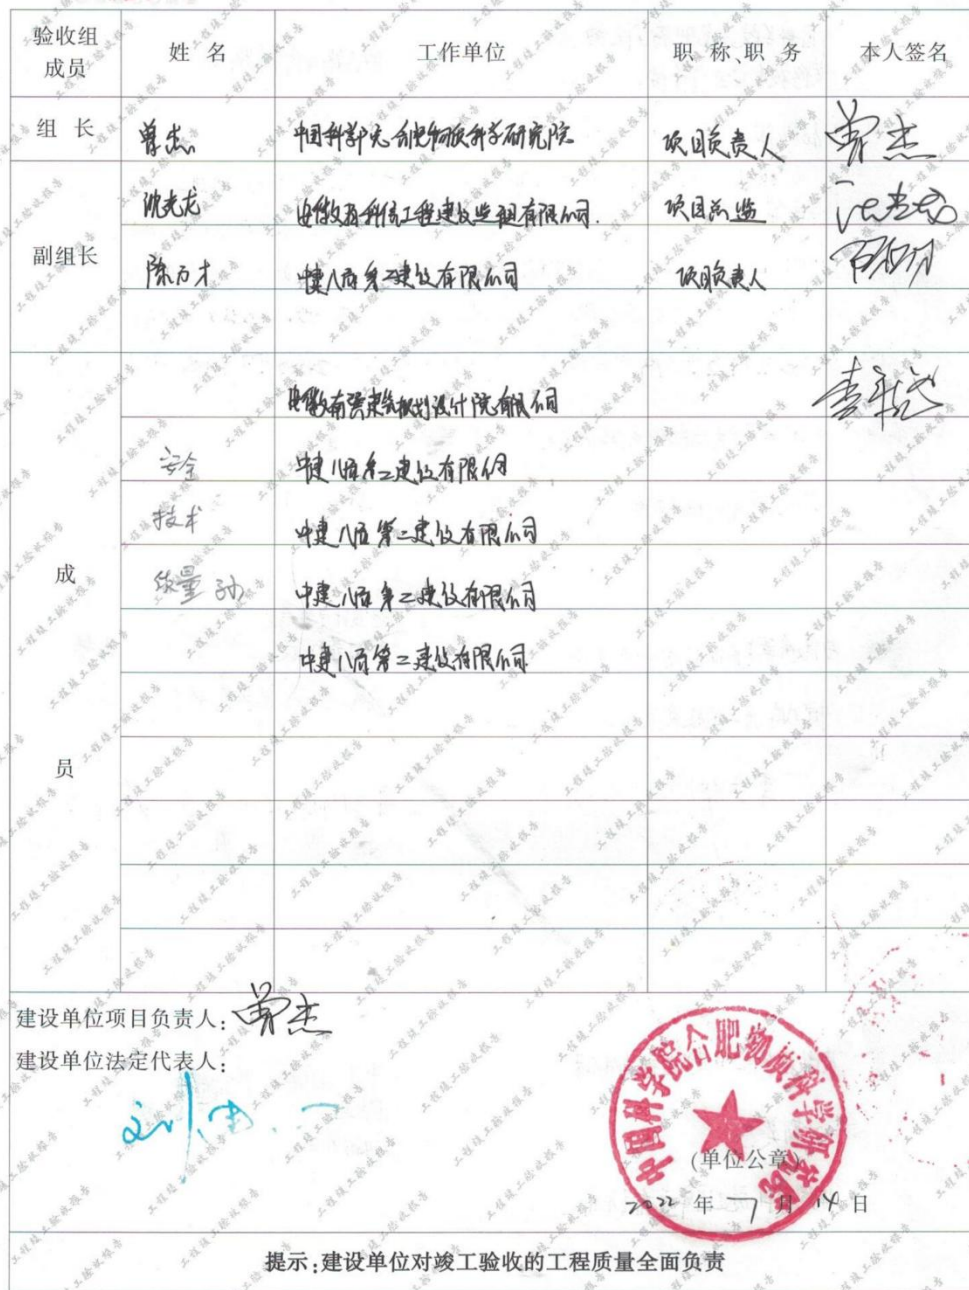 验收组成员 姓 名 工作单位 职 称、职 务 本人签名
组 长 曾杰 中国科学院合肥物质科学研究院 项目负责人 曾杰
副组长
沈光龙 有限公司 项目总监
陈万才 中建八局第二建设有限公司 项目负责人
成员
规划设计院有限公司
安全 中建八局第二建设有限公司
技术 中建八局第二建设有限公司
质量 孙 中建八局第二建设有限公司
中建八局第二建设有限公司
建设单位项目负责人: 曾杰
建设单位法定代表人:
中国科学院合肥物质科学研究院
(单位公章)
2022 年 7 月 14 日
提示:建设单位对竣工验收的工程质量全面负责
工程竣工验收报告